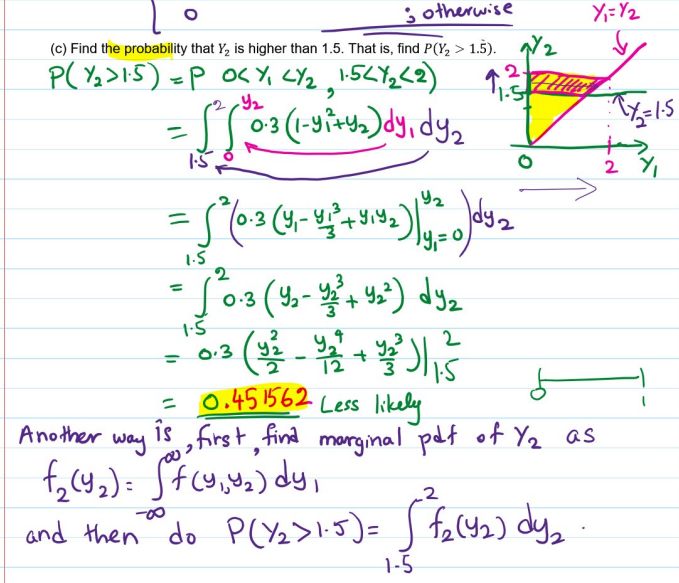 0 ; otherwise
(c) Find the probability that Y₂ is higher than 1.5. That is, find P(Y₂ > 1.5).
P(Y₂>1.5) = P(0<Y₁<Y₂, 1.5<Y₂<2)
= ∫_{1.5}^{2} ∫_{0}^{y₂} 0.3 (1-y₁²+y₂) dy₁ dy₂
Y₁=Y₂
Y₂
2
1.5
Y₂=1.5
0 2 Y₁
= ∫_{1.5}^{2} (0.3 (y₁ - y₁³/3 + y₁y₂)|_{y₁=0}^{y₂}) dy₂
= ∫_{1.5}^{2} 0.3 (y₂ - y₂³/3 + y₂²) dy₂
= 0.3 (y₂²/2 - y₂⁴/12 + y₂³/3)|_{1.5}^{2}
= 0.451562 Less likely
0 1
Another way is, first, find marginal pdf of Y₂ as
f₂(y₂) = ∫_{-∞}^{∞} f(y₁,y₂) dy₁
and then do P(Y₂>1.5) = ∫_{1.5}^{2} f₂(y₂) dy₂ .